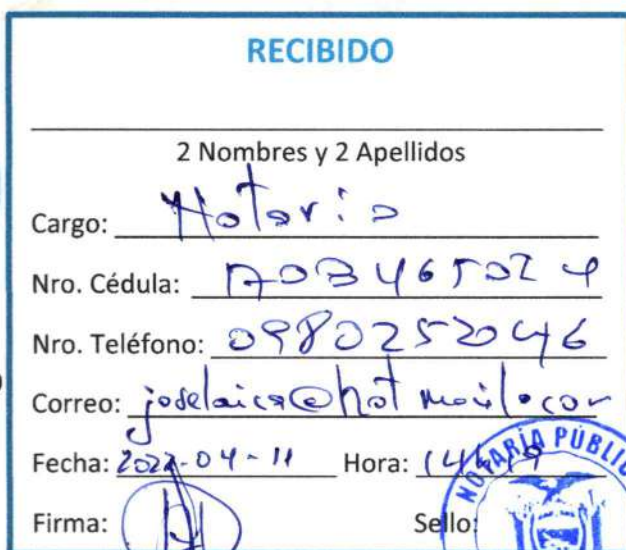 RECIBIDO
2 Nombres y 2 Apellidos
Cargo: Notario
Nro. Cédula:
Nro. Teléfono: 0980252046
Correo: joselaica@hotmail.com
Fecha: 2022-04-11 Hora:
Firma: Sello:
NOTARÍA PÚBLI